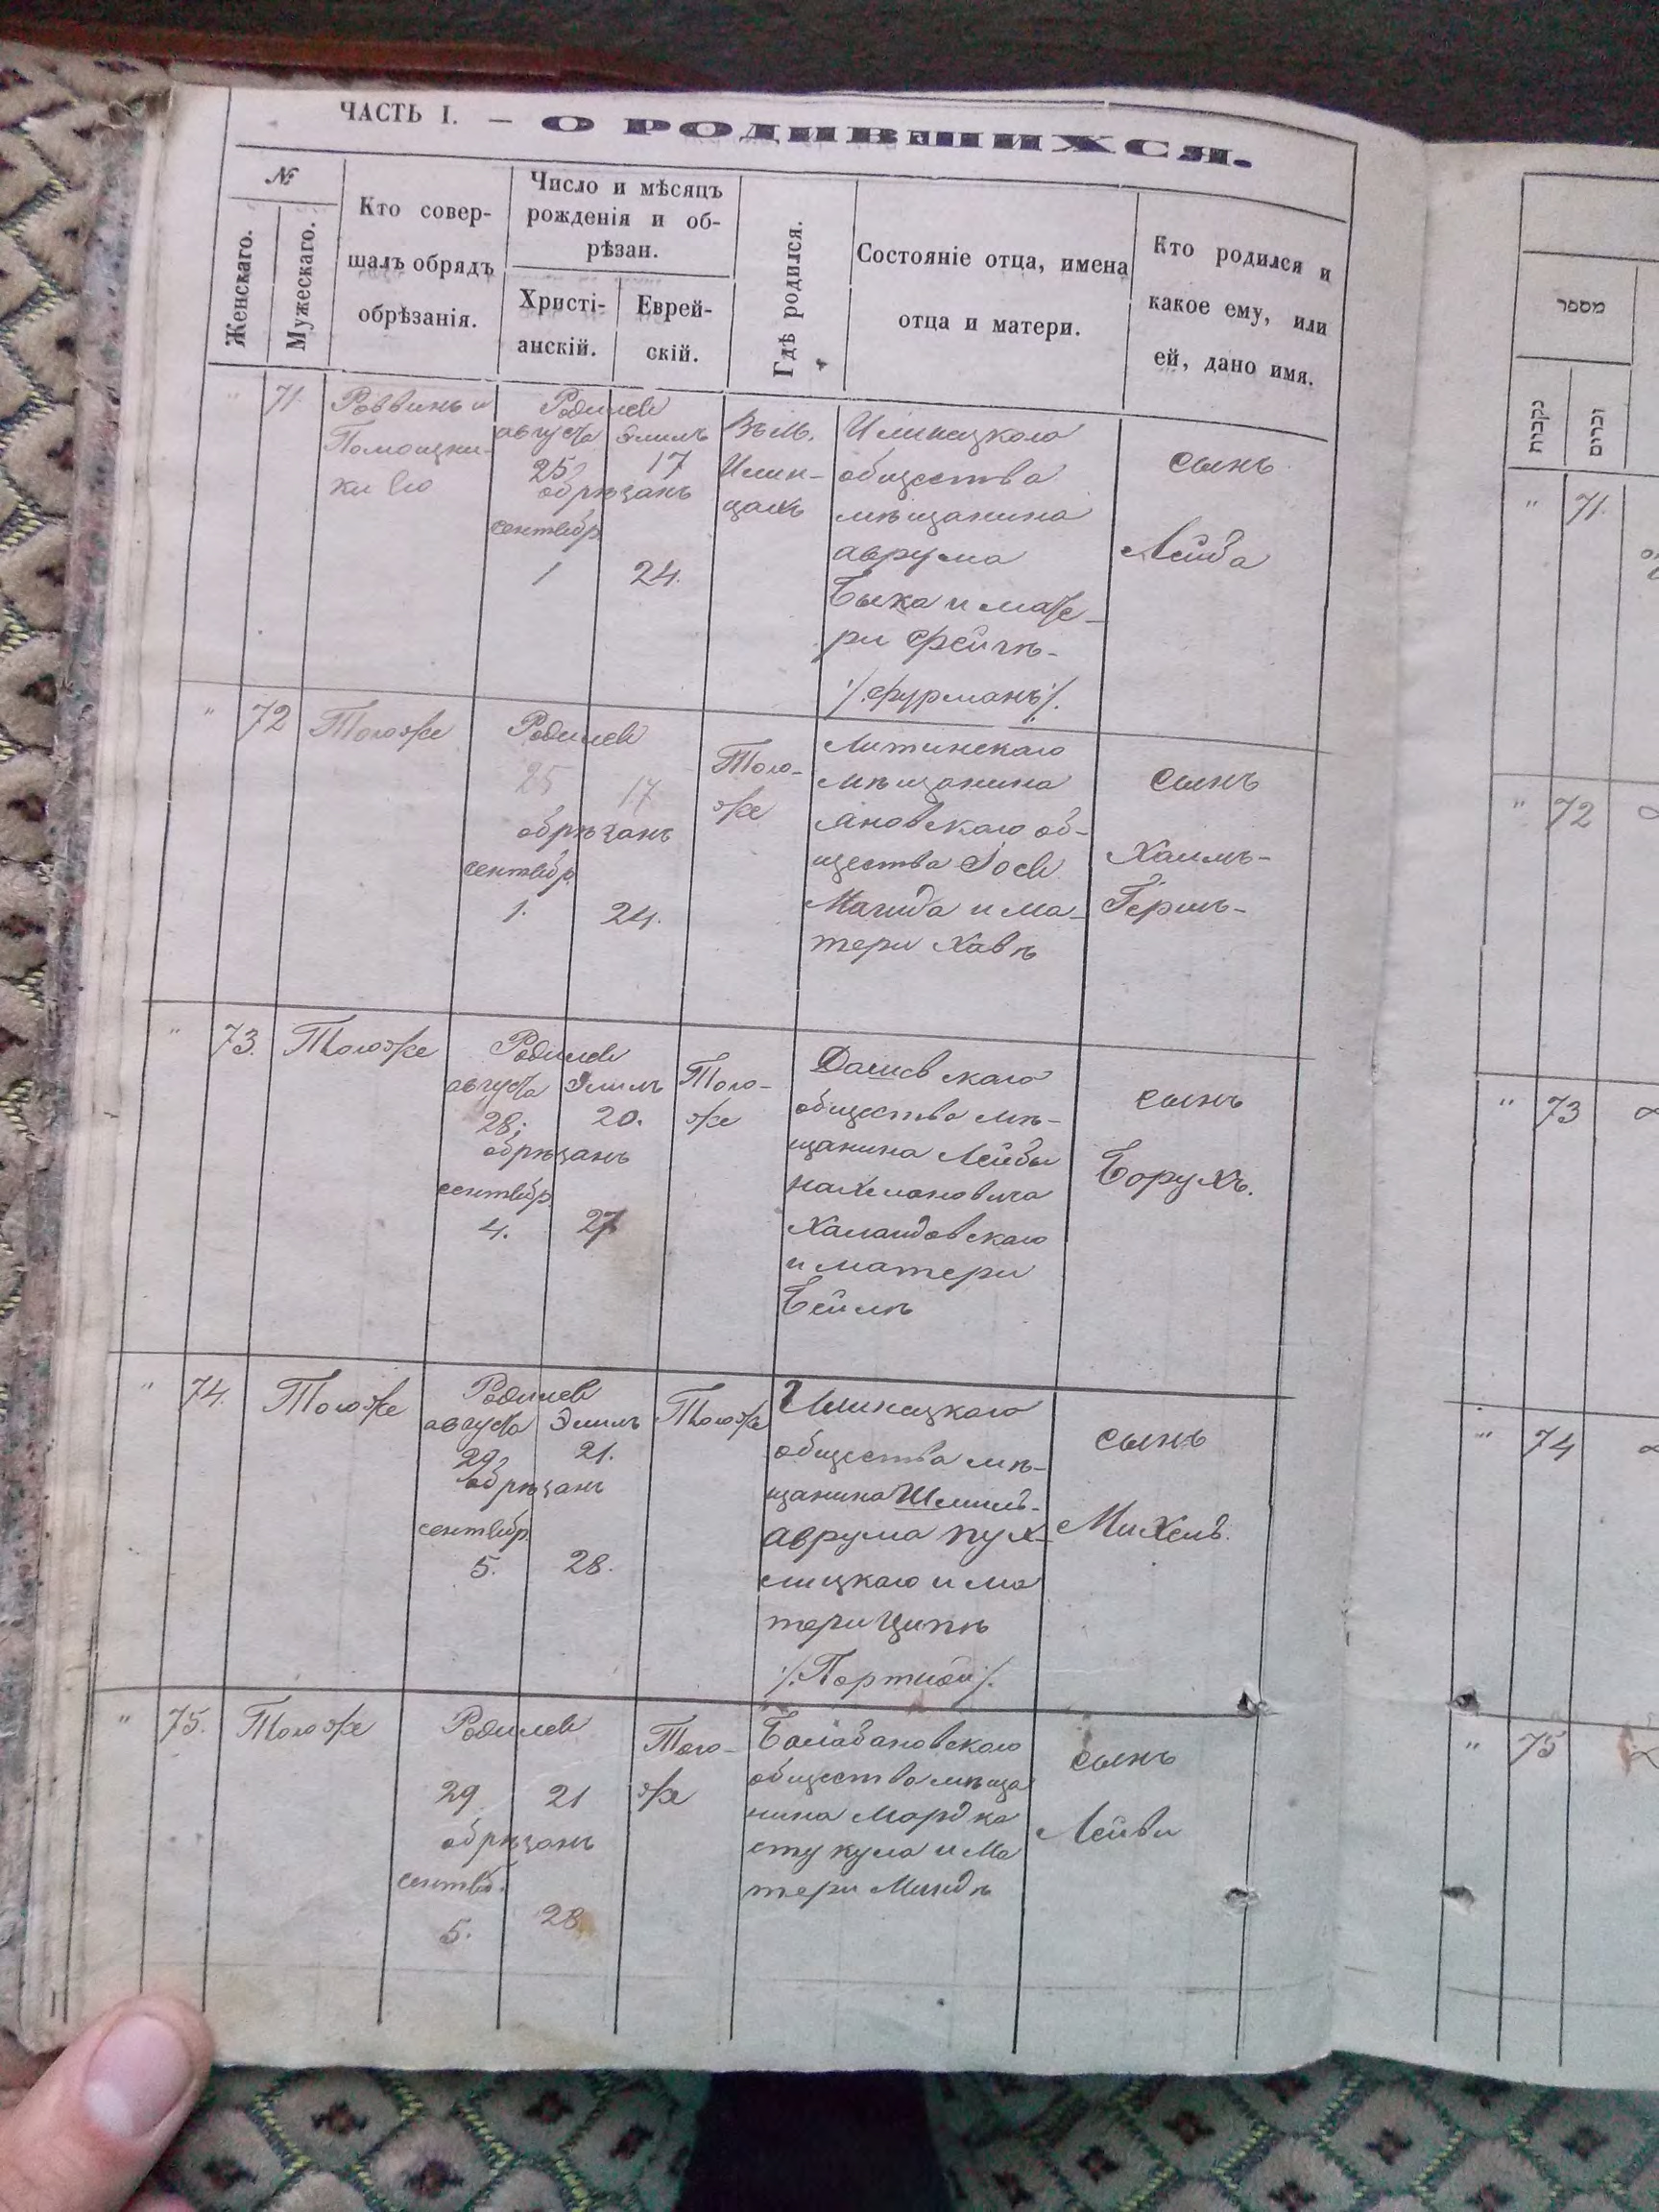 ЧАСТЬ I. — О РОДИВШИХСЯ.
№
Женскаго.
Мужескаго.
Кто совер-
шалъ обрядъ
обрѣзанія.
Число и мѣсяцъ
рожденія и об-
рѣзан.
Христі-
анскій.
Еврей-
скій.
Гдѣ родился.
Состояніе отца, имена
отца и матери.
Кто родился и
какое ему, или
ей, дано имя.
" 71.
Раввинъ и
Помощни-
ки его
Родился
августа Элилъ
25 17
обрѣзанъ
сентября
1 24.
Въ м.
Илин-
цахъ
Илинецкаго
общества
мѣщанина
Аврума
Быка и мате-
ри Фейгѣ-
/. Фурманъ /.
сынъ
Лейба
" 72
Тогоже
Родился
25 17
обрѣзанъ
сентябр.
1. 24.
Того-
же
Литинскаго
мѣщанина
Яновскаго об-
щества Іося
Магида и ма-
тери Хавѣ
сынъ
Хаимъ-
Гершъ-
" 73.
Тогоже
Родился
августа Элилъ
28; 20.
обрѣзанъ
сентябр.
4. 27
Того-
же
Дашевскаго
общества мѣ-
щанина Лейбы
Нахмановича
и матери
Бейлѣ
сынъ
Борухъ.
" 74.
Тогоже
Родился
августа Элилъ
29 21.
обрѣзанъ
сентябр.
5. 28.
Тогоже
Илинецкаго
общества мѣ-
щанина Шмиль-
Аврума Пух-
лицкаго и ма
тери Ципѣ
/. Портной /.
сынъ
Михель.
" 75.
Тогоже
Родился
29 21
обрѣзанъ
сентяб.
5. 28
Того-
же
Балабановскаго
общества мѣща
нина Мордка
Стукула и Ма
тери Миндѣ
сынъ
Лейви
מספר
נקבות
זכרים
" 71.
" 72
" 73
" 74
" 75